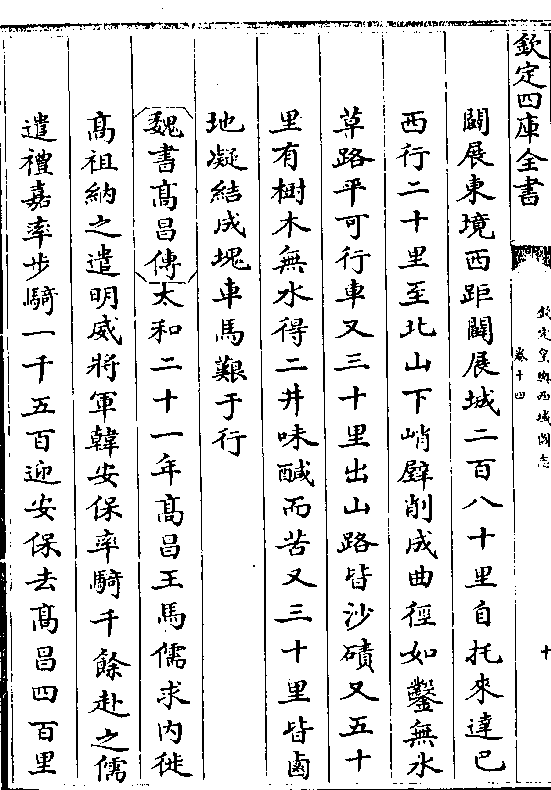 欽定四庫全書
欽定皇輿西域圖志
卷十四
十
闢展東境西距闢展城二百八十里自托來達巴
西行二十里至北山下峭壁削成曲徑如鑿無水
草路平可行車又三十里出山路皆沙磧又五十
里有樹木無水得二井味鹹而苦又三十里皆鹵
地凝結成塊車馬艱于行
魏書髙昌傳太和二十一年髙昌王馬儒求内徙
髙祖納之遣明威將軍韓安保率騎千餘赴之儒
遣禮嘉率步騎一千五百迎安保去髙昌四百里